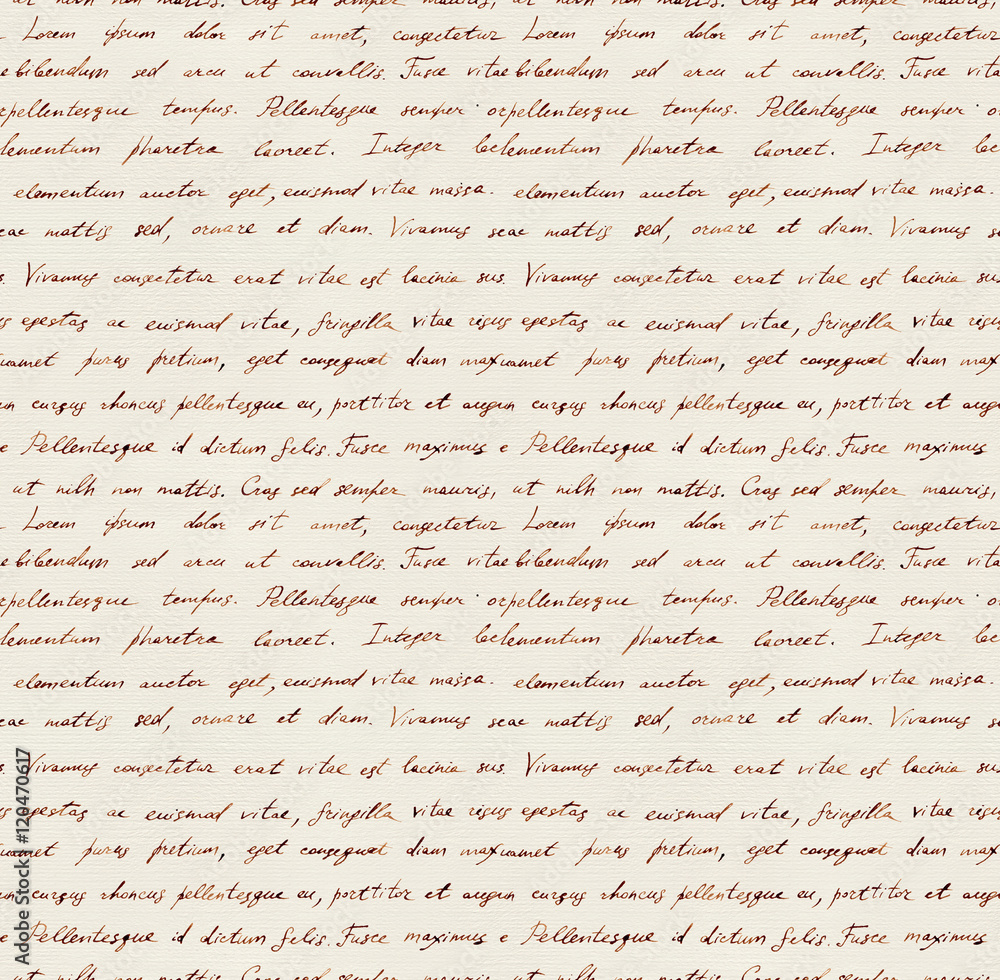 ut nibh non mattis. Cras sed semper mauris, ut nibh non mattis. Cras sed semper mauris,
Lorem ipsum dolor sit amet, consectetur Lorem ipsum dolor sit amet, consectetur
e bibendum sed arcu ut convallis. Fusce vitae bibendum sed arcu ut convallis. Fusce vita
orpellentesque tempus. Pellentesque semper orpellentesque tempus. Pellentesque semper o
lementum pharetra laoreet. Integer laelementum pharetra laoreet. Integer
elementum auctor eget, euismod vitae massa. elementum auctor eget, euismod vitae massa.
eac mattis sed, ornare et diam. Vivamus seac mattis sed, ornare et diam. Vivamus s
s. Vivamus consectetur erat vitae est lacinia sus. Vivamus consectetur erat vitae est lacinia sus
us egestas ac euismod vitae, fringilla vitae risus egestas ac euismod vitae, fringilla vitae risu
uamet purus pretium, eget consequat diam maxuamet purus pretium, eget consequat diam max
un cursus rhoncus pellentesque eu, porttitor et augun cursus rhoncus pellentesque eu, porttitor et augu
e Pellentesque id dictum felis. Fusce maximus e Pellentesque id dictum felis. Fusce maximus
ut nibh non mattis. Cras sed semper mauris, ut nibh non mattis. Cras sed semper mauris,
Lorem ipsum dolor sit amet, consectetur Lorem ipsum dolor sit amet, consectetur
e bibendum sed arcu ut convallis. Fusce vitae bibendum sed arcu ut convallis. Fusce vita
orpellentesque tempus. Pellentesque semper orpellentesque tempus. Pellentesque semper o
lementum pharetra laoreet. Integer laelementum pharetra laoreet. Integer
elementum auctor eget, euismod vitae massa. elementum auctor eget, euismod vitae massa.
eac mattis sed, ornare et diam. Vivamus seac mattis sed, ornare et diam. Vivamus s
s. Vivamus consectetur erat vitae est lacinia sus. Vivamus consectetur erat vitae est lacinia sus
us egestas ac euismod vitae, fringilla vitae risus egestas ac euismod vitae, fringilla vitae risu
uamet purus pretium, eget consequat diam maxuamet purus pretium, eget consequat diam max
un cursus rhoncus pellentesque eu, porttitor et augun cursus rhoncus pellentesque eu, porttitor et augu
e Pellentesque id dictum felis. Fusce maximus e Pellentesque id dictum felis. Fusce maximus
ut nibh non mattis. Cras sed semper mauris, ut nibh non mattis. Cras sed semper mauris,
Adobe Stock | #120470617